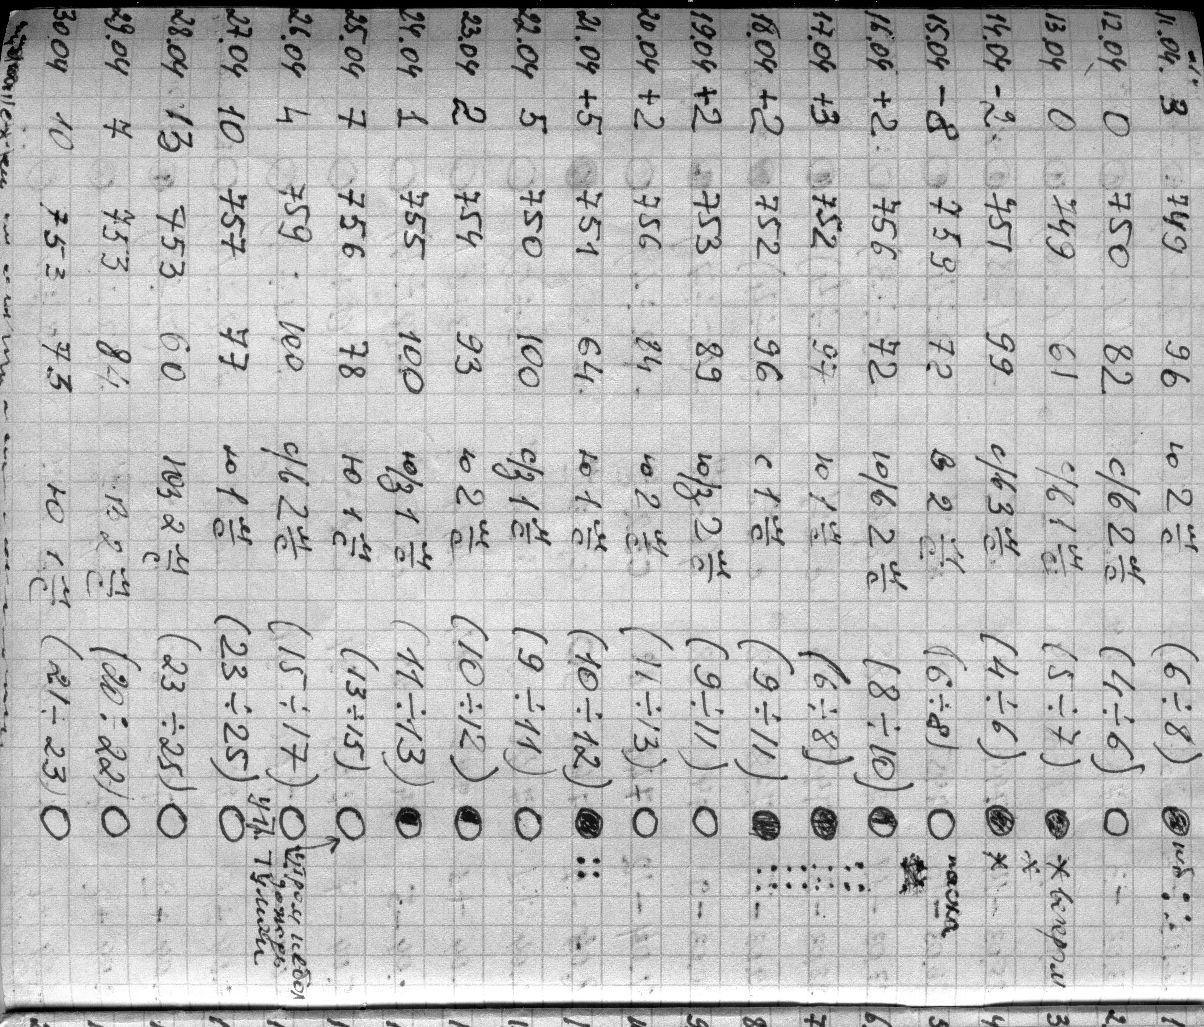 11.04. 3 749 96 ю 2 м/с (6÷8)
12.04 0 750 82 с/в 2 м/с (4÷6)
13.04 0 749 61 с/в 1 м/с (5÷7)
14.04 -2 751 99 с/в 3 м/с (4÷6)
15.04 -8 759 72 в 2 м/с (6÷8) пасха
16.04 +2 756 72 ю/в 2 м/с (8÷10)
17.04 +3 752 97 ю 1 м/с (6÷8)
18.04 +2 752 96 с 1 м/с (9÷11)
19.04 +2 753 89 ю/з 2 м/с (9÷11)
20.04 +2 756 84 ю 2 м/с (11÷13)
21.04 +5 751 64 ю 1 м/с (10÷12)
22.04 5 750 100 с/з 1 м/с (9÷11)
23.04 2 754 93 ю 2 м/с (10÷12)
24.04 1 755 100 ю/з 1 м/с (11÷13)
25.04 7 756 78 ю 1 м/с (13÷15)
26.04 4 759 100 с/в 2 м/с (15÷17)
27.04 10 757 77 ю 1 м/с (23÷25)
28.04 13 753 60 юз 2 м/с (23÷25)
29.04 7 753 84 в 2 м/с (20÷22)
30.04 10 753 73 ю 1 м/с (21÷23)